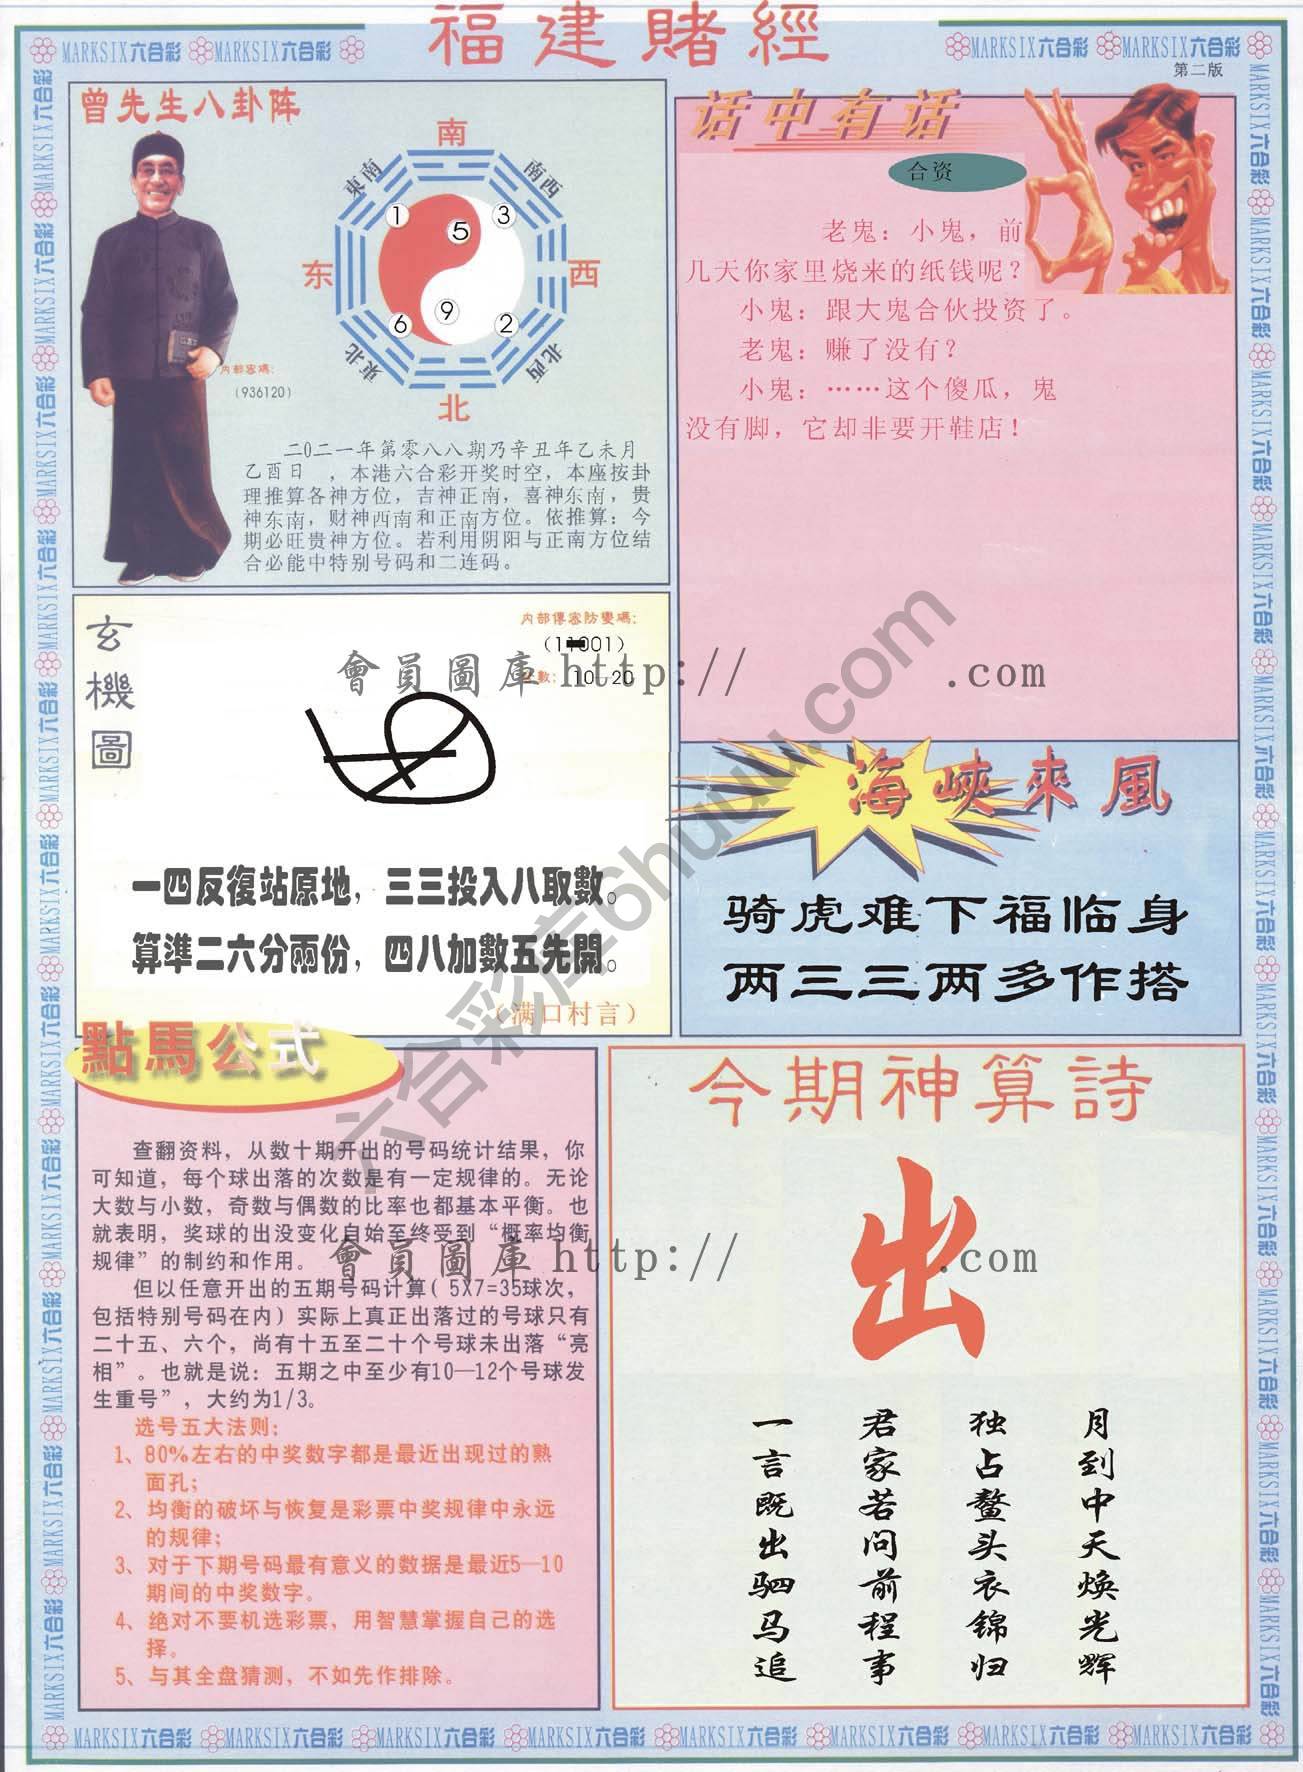 福建賭經
MARKSIX六合彩 MARKSIX六合彩
MARKSIX六合彩 MARKSIX六合彩
第二版
曾先生八卦阵
南
東南
南西
1
3
5
东
西
9
6
2
東北
北西
北
内部密碼:
(936120)
二0二一年第零八八期乃辛丑年乙未月
乙酉日 ，本港六合彩开奖时空，本座按卦
理推算各神方位，吉神正南，喜神东南，贵
神东南，财神西南和正南方位。依推算：今
期必旺贵神方位。若利用阴阳与正南方位结
合必能中特别号码和二连码。
话中有话
合资
老鬼：小鬼，前
几天你家里烧来的纸钱呢？
小鬼：跟大鬼合伙投资了。
老鬼：赚了没有？
小鬼：……这个傻瓜，鬼
没有脚，它却非要开鞋店！
玄機圖
内部傳密防變碼:
數: 10 20
會員圖庫 http:// .com
一四反復站原地，三三投入八取數。
算準二六分兩份，四八加數五先開。
（满口村言）
海峽來風
骑虎难下福临身
两三三两多作搭
六合彩库6huuu.com
點馬公式
查翻资料，从数十期开出的号码统计结果，你
可知道，每个球出落的次数是有一定规律的。无论
大数与小数，奇数与偶数的比率也都基本平衡。也
就表明，奖球的出没变化自始至终受到“概率均衡
规律”的制约和作用。
但以任意开出的五期号码计算( 5X7=35球次，
包括特别号码在内）实际上真正出落过的号球只有
二十五、六个，尚有十五至二十个号球未出落“亮
相”。也就是说：五期之中至少有10—12个号球发
生重号”，大约为1/3。
选号五大法则：
1、80%左右的中奖数字都是最近出现过的熟
面孔；
2、均衡的破坏与恢复是彩票中奖规律中永远
的规律；
3、对于下期号码最有意义的数据是最近5—10
期间的中奖数字。
4、绝对不要机选彩票，用智慧掌握自己的选
择。
5、与其全盘猜测，不如先作排除。
會員圖庫 http:// .com
今期神算詩
出
月到中天焕光辉
独占鳌头衣锦归
君家若问前程事
一言既出驷马追
MARKSIX六合彩 MARKSIX六合彩 MARKSIX六合彩 MARKSIX六合彩 MARKSIX六合彩 MARKSIX六合彩 MARKSIX六合彩 MARKSIX六合彩